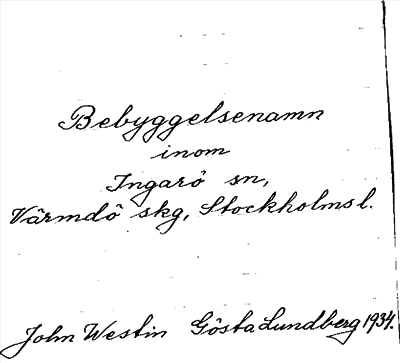 Bebyggelsenamn
inom
Ingarö sn,
Värmdö skg, Stockholms l.
John Westin Gösta Lundberg 1934.